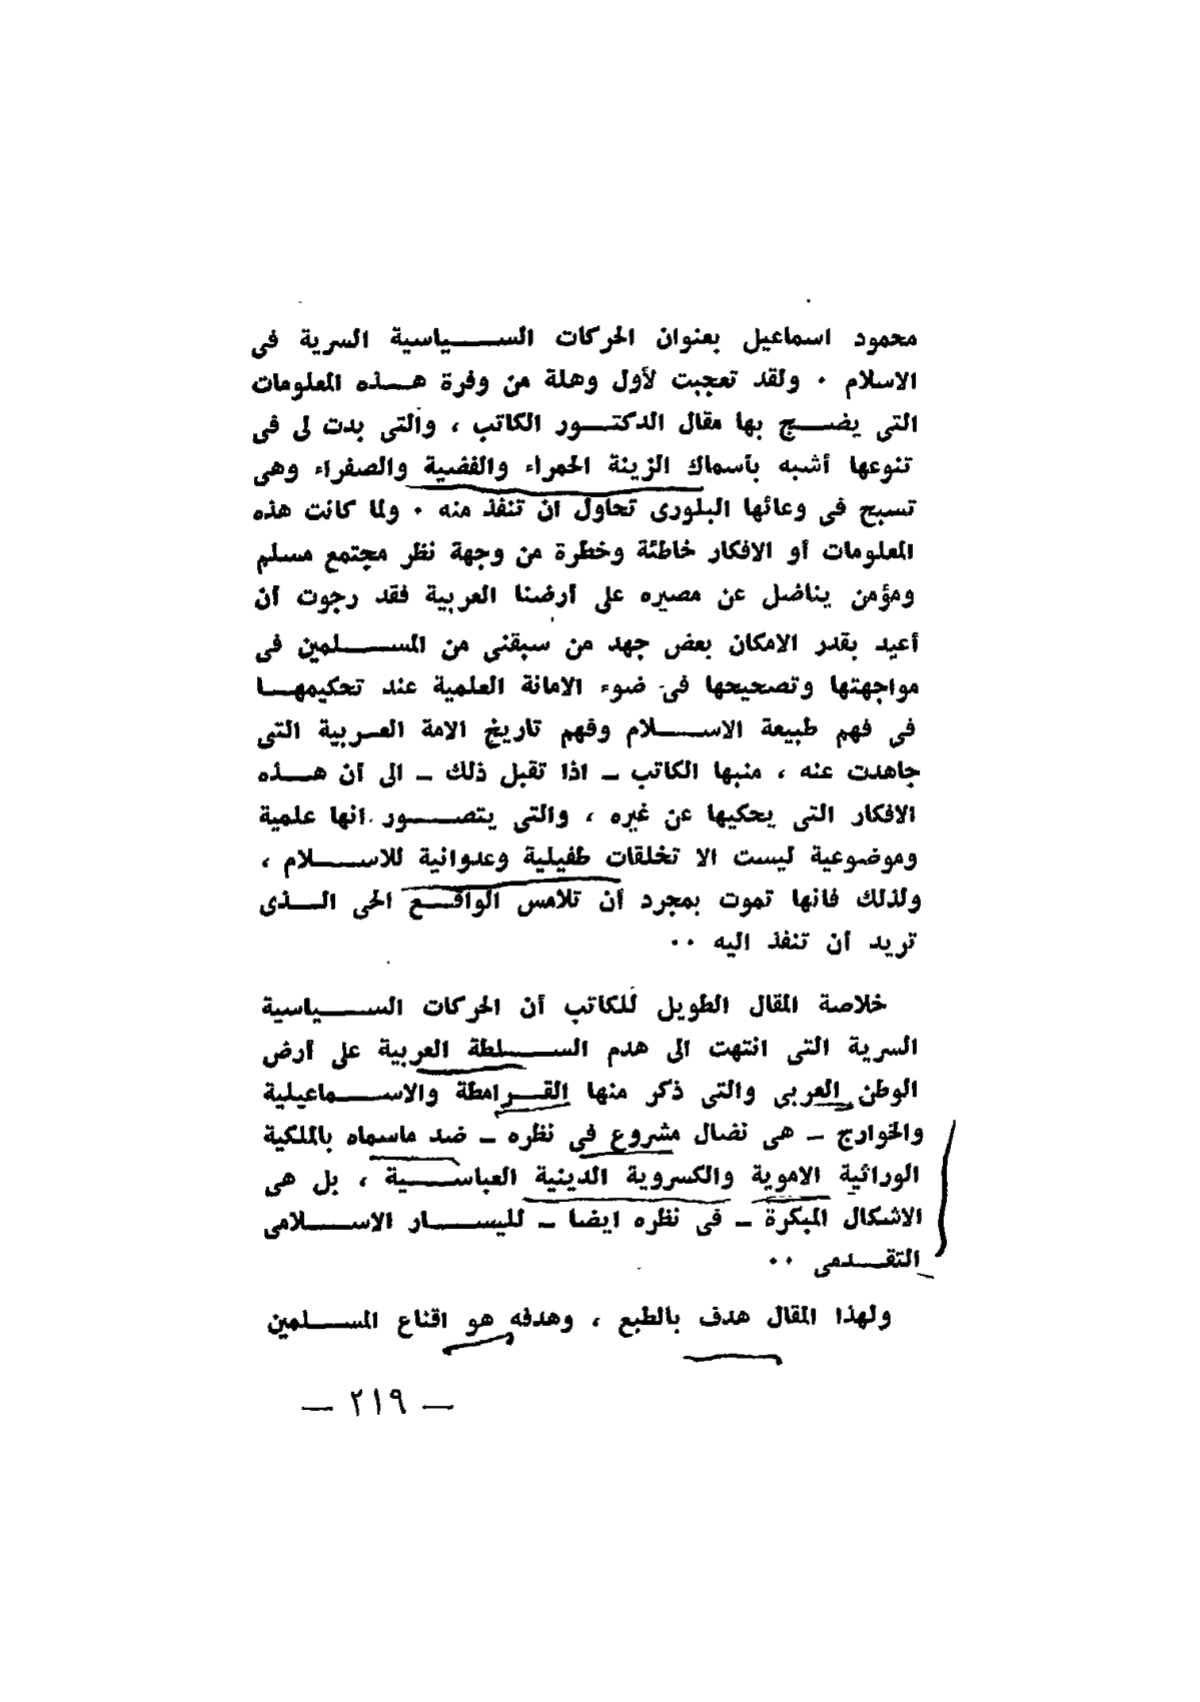 محمود اسماعيل بعنوان الحركات السياسية السرية فى
الاسلام . ولقد تعجبت لأول وهلة من وفرة هذه المعلومات
التى يضج بها مقال الدكتور الكاتب ، والتى بدت لى فى
تنوعها أشبه بأسماك الزينة الحمراء والفضية والصفراء وهى
تسبح فى وعائها البلورى تحاول أن تنفذ منه . ولما كانت هذه
المعلومات أو الافكار خاطئة وخطرة من وجهة نظر مجتمع مسلم
ومؤمن يناضل عن مصيره على أرضنا العربية فقد رجوت أن
أعيد بقدر الامكان بعض جهد من سبقنى من المسلمين فى
مواجهتها وتصحيحها فى ضوء الامانة العلمية عند تحكيمها
فى فهم طبيعة الاسلام وفهم تاريخ الامة العربية التى
جاهدت عنه ، منبها الكاتب – اذا تقبل ذلك – الى أن هذه
الافكار التى يحكيها عن غيره ، والتى يتصور انها علمية
وموضوعية ليست الا تخلقات طفيلية وعدوانية للاسلام ،
ولذلك فانها تموت بمجرد أن تلامس الواقع الحى الذى
تريد أن تنفذ اليه ..
خلاصة المقال الطويل للكاتب أن الحركات السياسية
السرية التى انتهت الى هدم السلطة العربية على أرض
الوطن العربى والتى ذكر منها القرامطة والاسماعيلية
والخوارج – هى نضال مشروع فى نظره – ضد ماسماه بالملكية
الوراثية الاموية والكسروية الدينية العباسية ، بل هى
الاشكال المبكرة – فى نظره ايضا – لليسار الاسلامى
التقدمى ..
ولهذا المقال هدف بالطبع ، وهدفه هو اقناع المسلمين
— ٢١٩ —